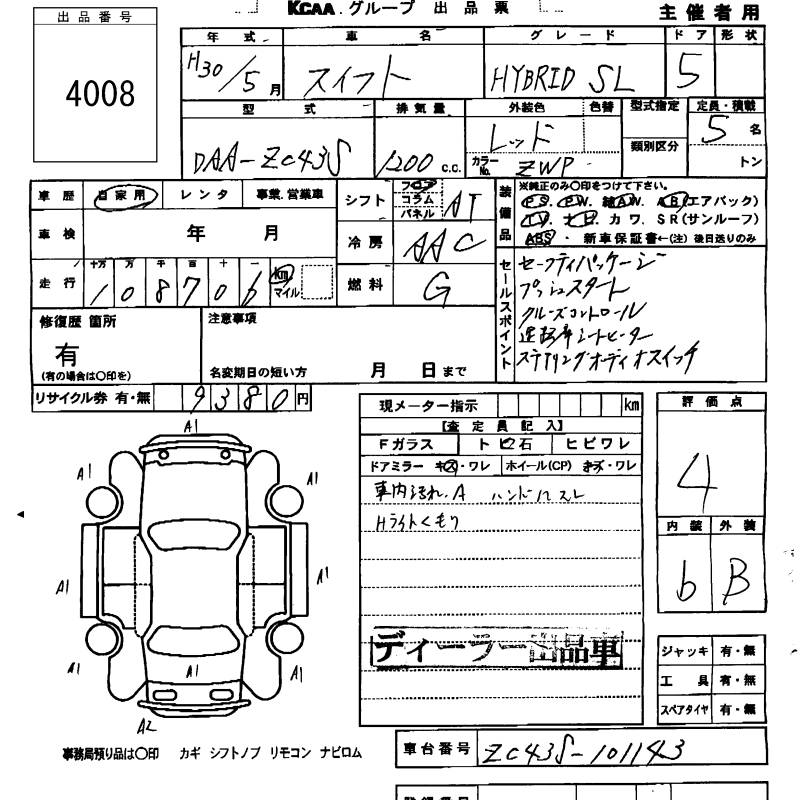 KCAA グループ 出品票 主催者用
出品番号
4008
年式 車名 グレード ドア 形状
H30/5月 スイフト HYBRID SL 5
型式 排気量 外装色 色替 型式指定 定員・積載
DAA-ZC43S 1200 c.c. レッド 類別区分 5名
カラーNo. ZWP トン
車歴 自家用 レンタ 事業.営業車
シフト フロア コラム パネル AT
装備品 ※純正のみ○印をつけて下さい。
PS. PW. 純AW. AB(エアバック)
TV. ナビ. カワ. SR(サンルーフ)
ABS. 新車保証書←(注) 後日送りのみ
車検 年 月
冷房 AAC
走行 十万 万 千 百 十 一
108706 km マイル
燃料 G
セールスポイント
セーフティパッケージ
プッシュスタート
クルーズコントロール
運転席シートヒーター
ステアリングオーディオスイッチ
修復歴 箇所
有
(有の場合は○印を)
注意事項
名変期日の短い方 月 日まで
リサイクル券 有・無 9380円
現メーター指示 km
【査定員記入】
Fガラス トビ石 ヒビワレ
ドアミラー キズ・ワレ ホイール(CP) キズ・ワレ
車内汚れ.A ハンドルスレ
Hライトくもり
ディーラー出品車
評価点
4
内装 外装
b B
A1
A1 A1
A1 A1
A1 A1 A1
A2
ジャッキ 有・無
工具 有・無
スペアタイヤ 有・無
事務局預り品は○印 カギ シフトノブ リモコン ナビロム
車台番号 ZC43S-101143